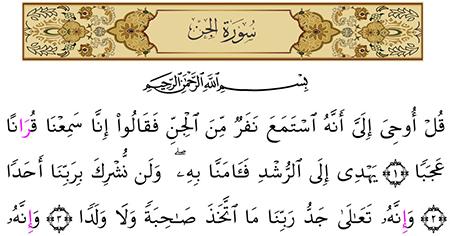 سُورَةُ الجِنّ
بِسْمِ اللَّهِ الرَّحْمَٰنِ الرَّحِيمِ
قُلْ أُوحِىَ إِلَىَّ أَنَّهُ ٱسْتَمَعَ نَفَرٌ مِّنَ ٱلْجِنِّ فَقَالُوٓا۟ إِنَّا سَمِعْنَا قُرَانًا
عَجَبًا ﴿١﴾ يَهْدِى إِلَى ٱلرُّشْدِ فَـَٔامَنَّا بِهِۦ ۖ وَلَن نُّشْرِكَ بِرَبِّنَا أَحَدًا
﴿٢﴾ وَإِنَّهُۥ تَعَـٰلَىٰ جَدُّ رَبِّنَا مَا ٱتَّخَذَ صَـٰحِبَةً وَلَا وَلَدًا ﴿٣﴾ وَإِنَّهُۥ